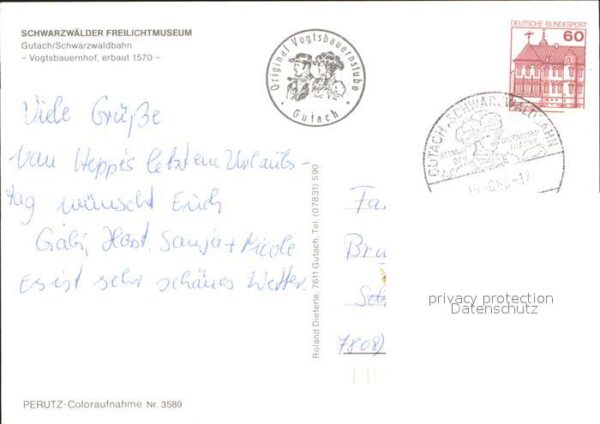 SCHWARZWÄLDER FREILICHTMUSEUM
Gutach/Schwarzwaldbahn
– Vogtsbauernhof, erbaut 1570 –
Original Vogtsbauernstube
· Gutach ·
DEUTSCHE BUNDESPOST
60
GUTACH, SCHWARZWALDBAHN
Viele Grüße
von Heppis letztem Urlaubs-
tag wünscht Euch
Gabi, Horst, Sanja + Nicole.
Es ist sehr schönes Wetter.
Roland Dieterle, 7611 Gutach, Tel. (07831) 590
Fa
Bru
7808)
privacy protection
Datenschutz
PERUTZ-Coloraufnahme Nr. 3589